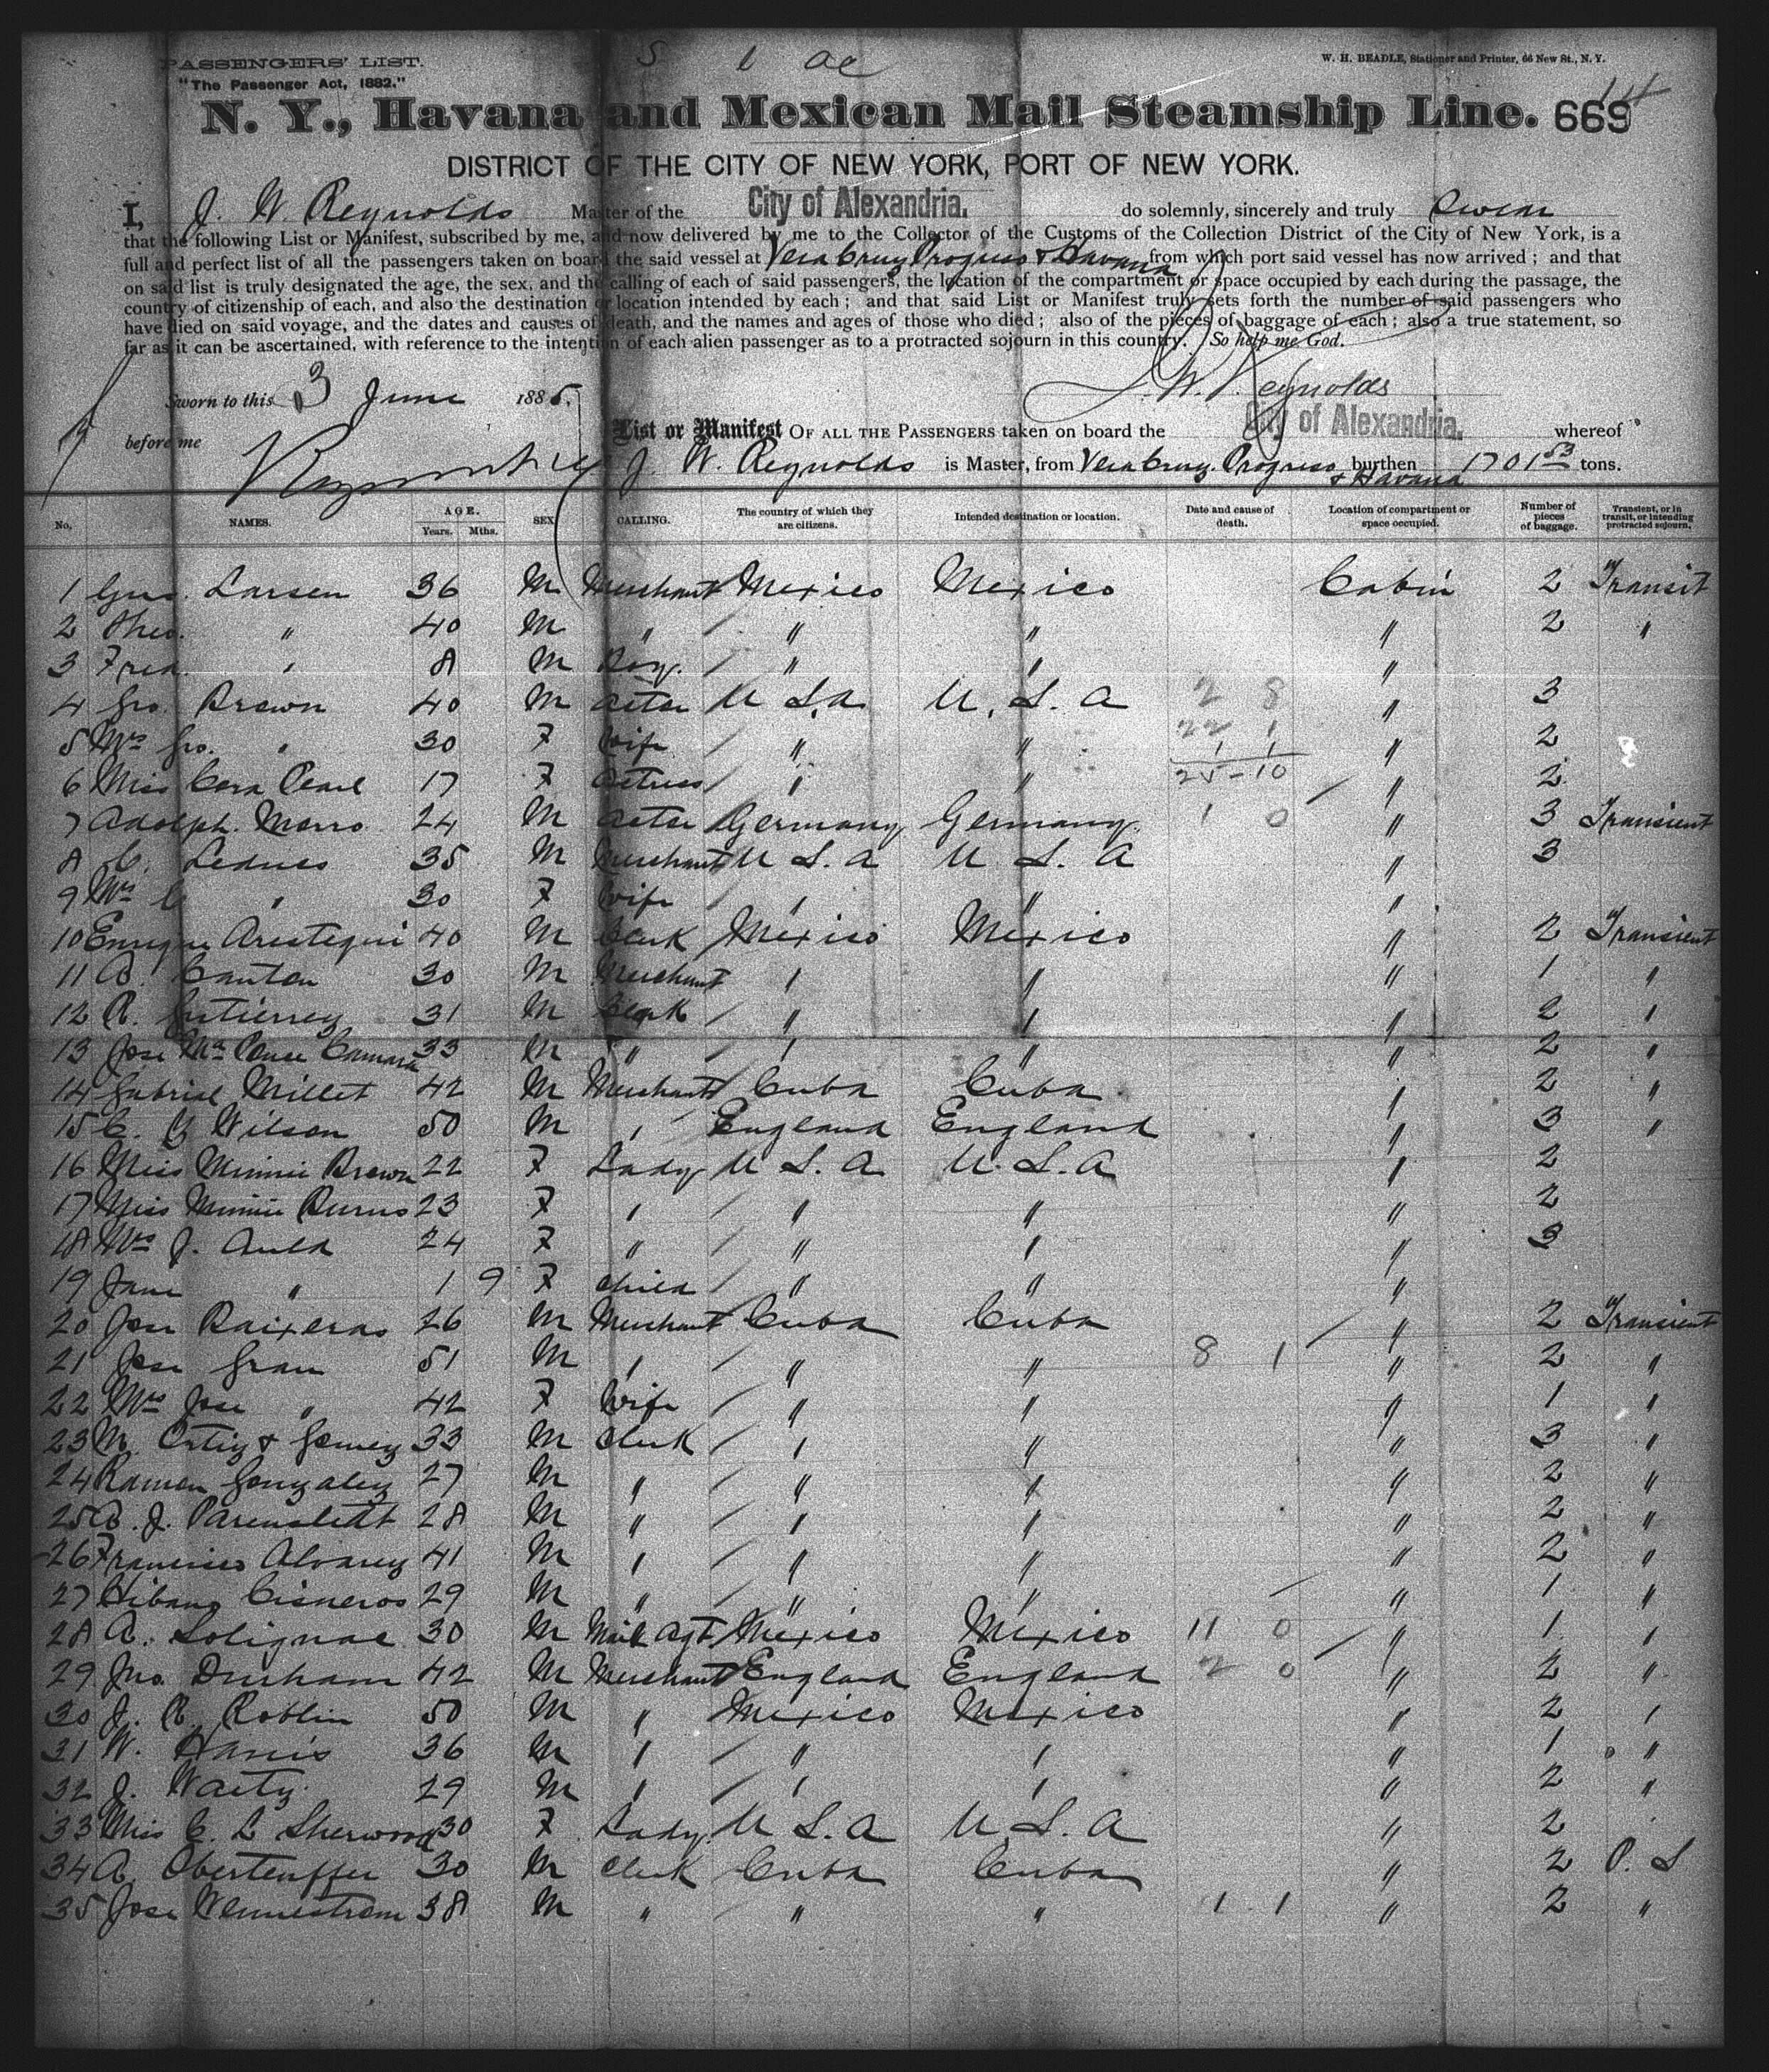 S 1 ac
PASSENGERS' LIST.
W. H. BEADLE, Stationer and Printer, 66 New St., N. Y.
"The Passenger Act, 1882."
N. Y., Havana and Mexican Mail Steamship Line. 669
DISTRICT OF THE CITY OF NEW YORK, PORT OF NEW YORK.
I, J. W. Reynolds Master of the City of Alexandria. do solemnly, sincerely and truly swear
that the following List or Manifest, subscribed by me, and now delivered by me to the Collector of the Customs of the Collection District of the City of New York, is a
full and perfect list of all the passengers taken on board the said vessel at Vera Cruz Progreso & Havana from which port said vessel has now arrived ; and that
on said list is truly designated the age, the sex, and the calling of each of said passengers, the location of the compartment or space occupied by each during the passage, the
country of citizenship of each, and also the destination or location intended by each ; and that said List or Manifest truly sets forth the number of said passengers who
have died on said voyage, and the dates and causes of death, and the names and ages of those who died ; also of the pieces of baggage of each ; also a true statement, so
far as it can be ascertained, with reference to the intention of each alien passenger as to a protracted sojourn in this country. So help me God.
Sworn to this 3 June 188
J. W. Reynolds
before me
List or Manifest OF ALL THE PASSENGERS taken on board the City of Alexandria. whereof
J. W. Reynolds is Master, from Vera Cruz. Progreso & Havana burthen 1701 53 tons.
No. NAMES. AGE. Years. Mths. SEX CALLING. The country of which they are citizens. Intended destination or location. Date and cause of death. Location of compartment or space occupied. Number of pieces of baggage. Transient, or in transit, or intending protracted sojourn.
1 Gus. Larsen 36 M Merchant Mexico Mexico Cabin 2 Transit
2 Theo. " 40 M " " " " 2 "
3 Fred. " 8 M Boy. " " "
4 Geo. Brown 40 M Actor U S. A U. S. A 2 8 " 3
5 Mrs Geo. " 30 F Wife " " 22 1 " 2
1 1
6 Miss Cora Pearl 17 F Actress " " 25-10 " 2
7 Adolph. Morro 24 M Actor Germany Germany. 1 0 " 3 Transient
8 C. 35 M Merchant U S. A U. S. A " 3
9 Mrs C " 30 F Wife " " "
10 Enrique Arestegui 40 M Clerk Mexico Mexico " 2 Transient
11 Canton 30 M Merchant " " " 1 "
12 R. Gutierrez 31 M Clerk " " " 2 "
13 Jose Ma Ponce Camara 33 M " " " " 2 "
14 Gabriel Millet 42 M Merchant Cuba Cuba " 2 "
15 C. Wilson 50 M " England England " 3 "
16 Miss Minnie Brown 22 F Lady U S. A U. S. A " 2
17 Miss Minnie Burns 23 F " " " " 2
18 Mrs J. Auld 24 F " " " " 3
19 Jane " 1 9 F Child " " "
20 Jose Raixeras 26 M Merchant Cuba Cuba " 2 Transient
21 Jose Grau 51 M " " " 8 1 " 2 "
22 Mrs Jose " 42 F Wife " " " 1 "
23 M. Ortiz & Gomez 33 M Clerk " " " 3 "
24 Ramon Gonzalez 27 M " " " " 2 "
25 J. 28 M " " " " 2 "
26 Francisco Alvarez 41 M " " " " 2 "
27 Cisneros 29 M " " " " 1 "
28 A. Solignac 30 M Mail Agt Mexico Mexico 11 0 " 1 "
29 Jno. Durham 42 M Merchant England England 2 0 " 2 "
30 J. R. Roblin 50 M " Mexico Mexico " 2 "
31 W. Harris 36 M " " " " 1 "
32 J. 29 M " " " " 2 "
33 Miss C. L Sherwood 30 F Lady. U S. A U S. A " 2
34 A. Oberteuffer 30 M Clerk Cuba Cuba " 2 P. S
35 Jose Wennestrom 38 M " " " 1 1 " 2 "